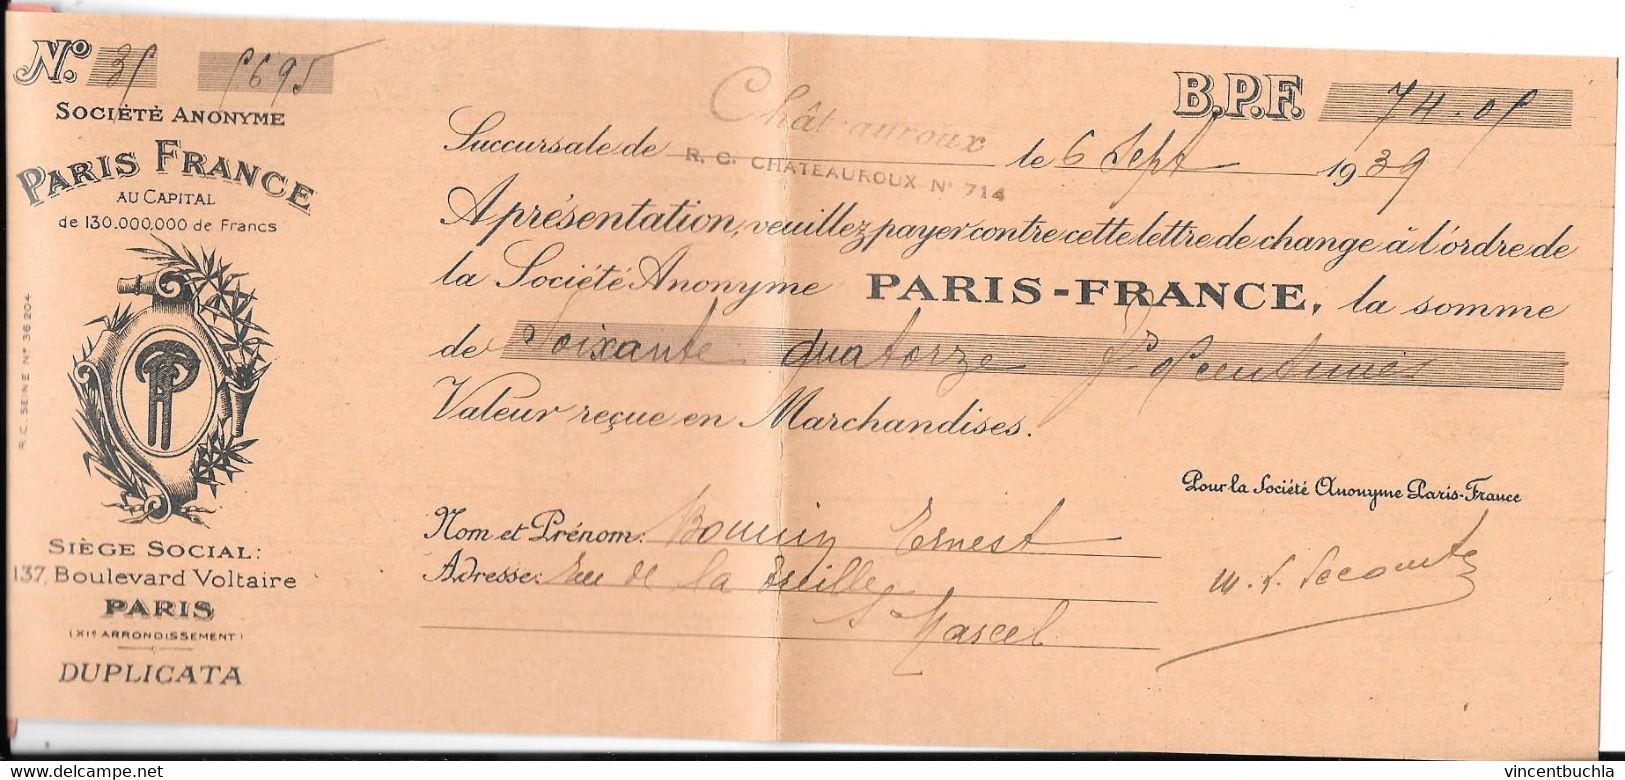 N° 35 5695
SOCIÉTÉ ANONYME
PARIS FRANCE
AU CAPITAL
de 130.000.000 de Francs
R.C. SEINE N° 36 204
SIÈGE SOCIAL:
137, Boulevard Voltaire
PARIS
(XIe ARRONDISSEMENT)
DUPLICATA
B.P.F. 74.05
Succursale de Châteauroux le 6 Sept 1939
R. C. CHATEAUROUX N° 714
A présentation, veuillez payer contre cette lettre de change à l'ordre de
la Société Anonyme PARIS-FRANCE, la somme
de Soixante quatorze frs
Valeur reçue en Marchandises.
Pour la Société Anonyme Paris-France
Nom et Prénom: Ernest
Adresse: Rue de la
St Marcel
Lecomte
vincentbuchla